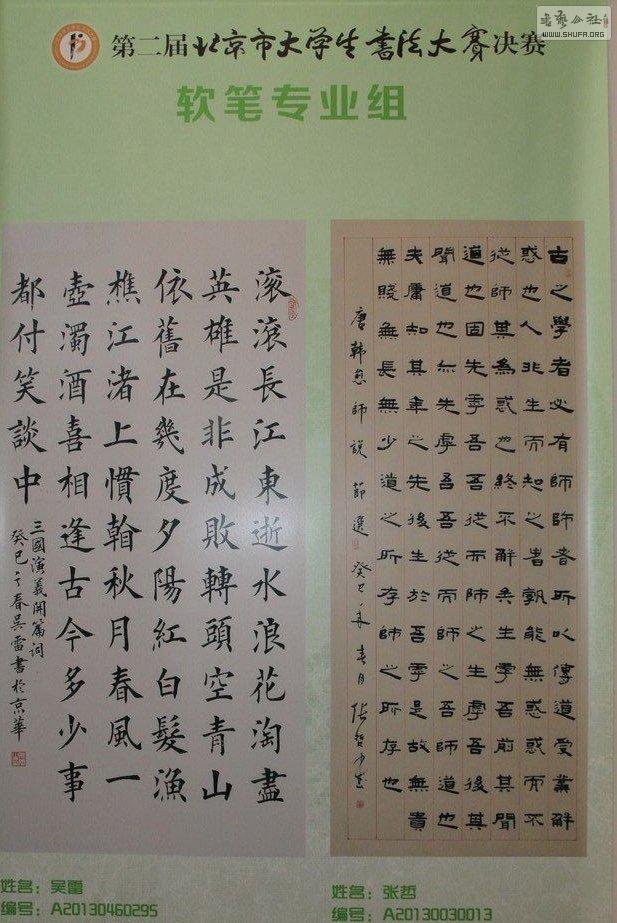 书艺公社
WWW.SHUFA.ORG
第二届北京市大学生书法大赛决赛
软笔专业组
古之學者必有師師者所以傳道受業解
惑也人非生而知之者孰能無惑惑而不
從師其為惑也終不解矣生乎吾前其聞
道也固先乎吾吾從而師之生乎吾後其
聞道也亦先乎吾吾從而師之吾師道也
夫庸知其年之先後生於吾乎是故無貴
無賤無長無少道之所存師之所存也
唐韓愈師說節選 癸巳年春月張哲
滾滾長江東逝水浪花淘盡
英雄是非成敗轉頭空青山
依舊在幾度夕陽紅白髮漁
樵江渚上慣翰秋月春風一
壺濁酒喜相逢古今多少事
都付笑談中
三國演義開篇詞
癸巳于春吳雷書於京華
姓名：吴雷
编号：A20130460295
姓名：张哲
编号：A20130030013